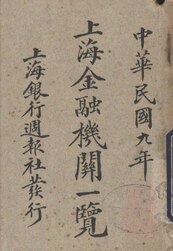 中華民國九年
上海金融機關一覽
上海銀行週報社發行